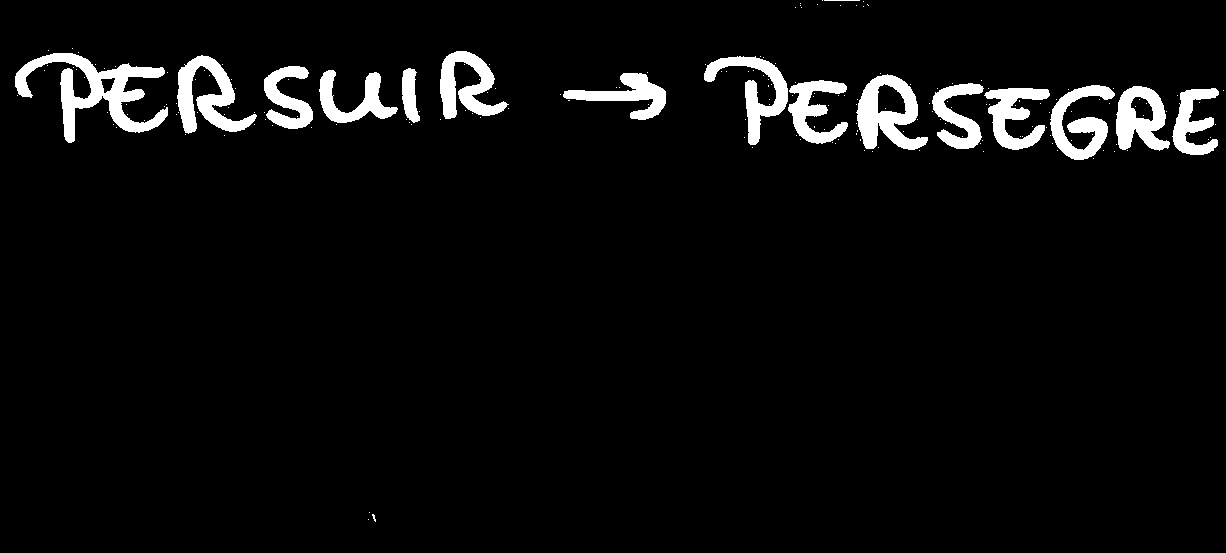 PERSUIR → PERSEGRE